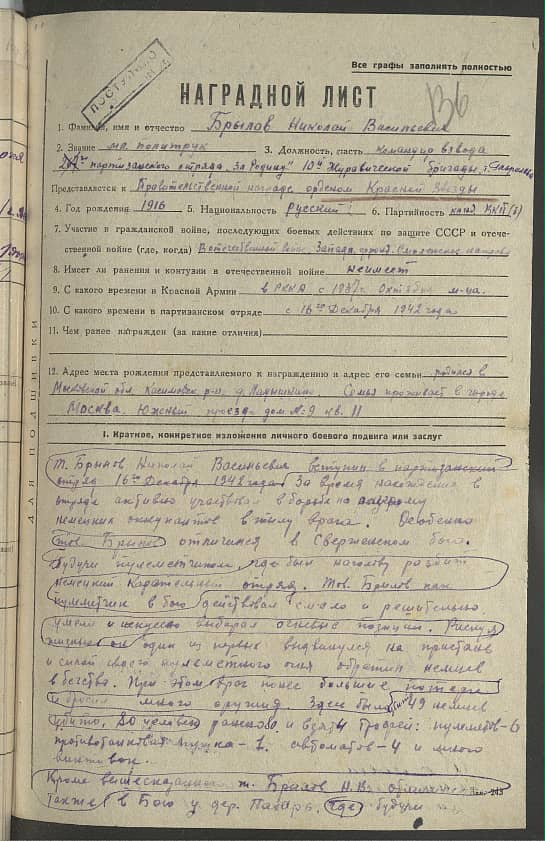 Все графы заполнять полностью
ПОСТУПИЛО
НАГРАДНОЙ ЛИСТ
136
1. Фамилия, имя и отчество Брылов Николай Васильевич
2. Звание мл. политрук 3. Должность, часть командир взвода
партизанского отряда "За Родину" 10й Журавической бригады,
Представляется к Правительственной награде орденом Красной Звезды
4. Год рождения 1916 5. Национальность Русский 6. Партийность ВКП(б)
7. Участие в гражданской войне, последующих боевых действиях по защите СССР и отече-
ственной войне (где, когда) В отечественной войне, Западн. фронт.
8. Имеет ли ранения и контузии в отечественной войне неимеет
9. С какого времени в Красной Армии в РККА с 1937 Октября м-ца.
10. С какого времени в партизанском отряде с 16го Декабря 1942 года
11. Чем ранее награжден (за какие отличия)
12. Адрес места рождения представляемого к награждению и адрес его семьи родился в
Московской обл. Касимовск. р-на, д. Семья проживает в городе
Москва, Южный проезд дом №9 кв. 11
ДЛЯ ПОДШИВКИ
I. Краткое, конкретное изложение личного боевого подвига или заслуг
Т. Брылов Николай Васильевич вступил в партизанский
отряд 16го Декабря 1942 года. За время нахождения в
отряде активно участвовал в борьбе по
немецких оккупантов в тылу врага. Особенно
тов. Брылов отличился в Свержанском бою.
Будучи пулеметчиком, где был наголову разбит
немецкий Карательный отряд. Тов. Брылов как
пулеметчик в бою действовал смело и решительно
умело и искусно выбирал огневые позиции. Рискуя
жизнью он один из первых выдвинулся на пристань
и силой своего пулеметного огня обратил немцев
в бегство. При этом враг понес большие потери
и бросил много оружия. Здесь было 49 немцев
убито, 20 человек ранено и взяты трофеи: пулеметов-6
противотанковая пушка-1. автоматов-4 и много
винтовок.
Кроме вышесказанного т. Брылов Н.В. отличился
также в Бою у дер. где будучи
Зак. 243